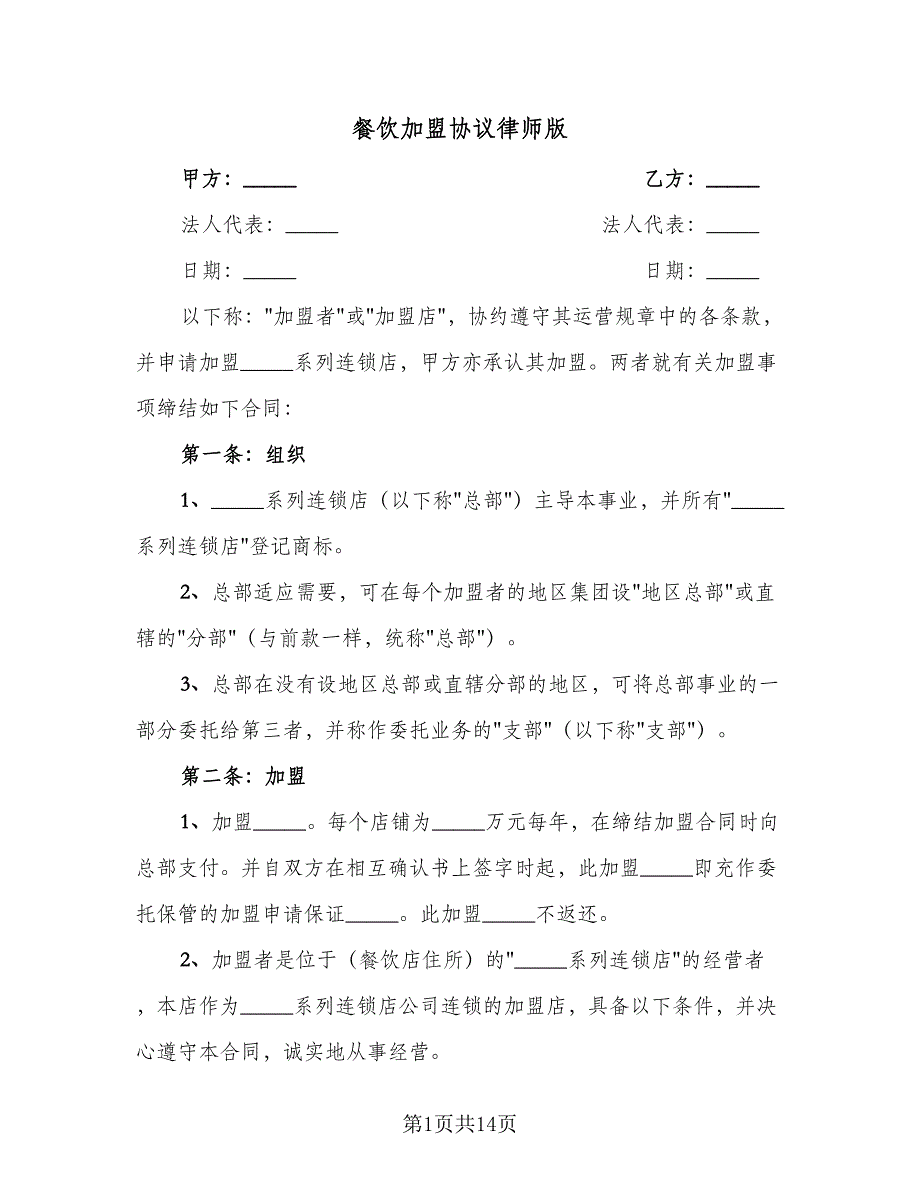 餐饮加盟协议律师版
甲方：_____ 乙方：_____
法人代表：_____ 法人代表：_____
日期：_____ 日期：_____
以下称："加盟者"或"加盟店"，协约遵守其运营规章中的各条款，
并申请加盟_____系列连锁店，甲方亦承认其加盟。两者就有关加盟事
项缔结如下合同：
第一条：组织
1、_____系列连锁店（以下称"总部"）主导本事业，并所有"_____
系列连锁店"登记商标。
2、总部适应需要，可在每个加盟者的地区集团设"地区总部"或直
辖的"分部"（与前款一样，统称"总部"）。
3、总部在没有设地区总部或直辖分部的地区，可将总部事业的一
部分委托给第三者，并称作委托业务的"支部"（以下称"支部"）。
第二条：加盟
1、加盟_____。每个店铺为_____万元每年，在缔结加盟合同时向
总部支付。并自双方在相互确认书上签字时起，此加盟_____即充作委
托保管的加盟申请保证_____。此加盟_____不返还。
2、加盟者是位于（餐饮店住所）的"_____系列连锁店"的经营者
，本店作为_____系列连锁店公司连锁的加盟店，具备以下条件，并决
心遵守本合同，诚实地从事经营。
第1页共14页